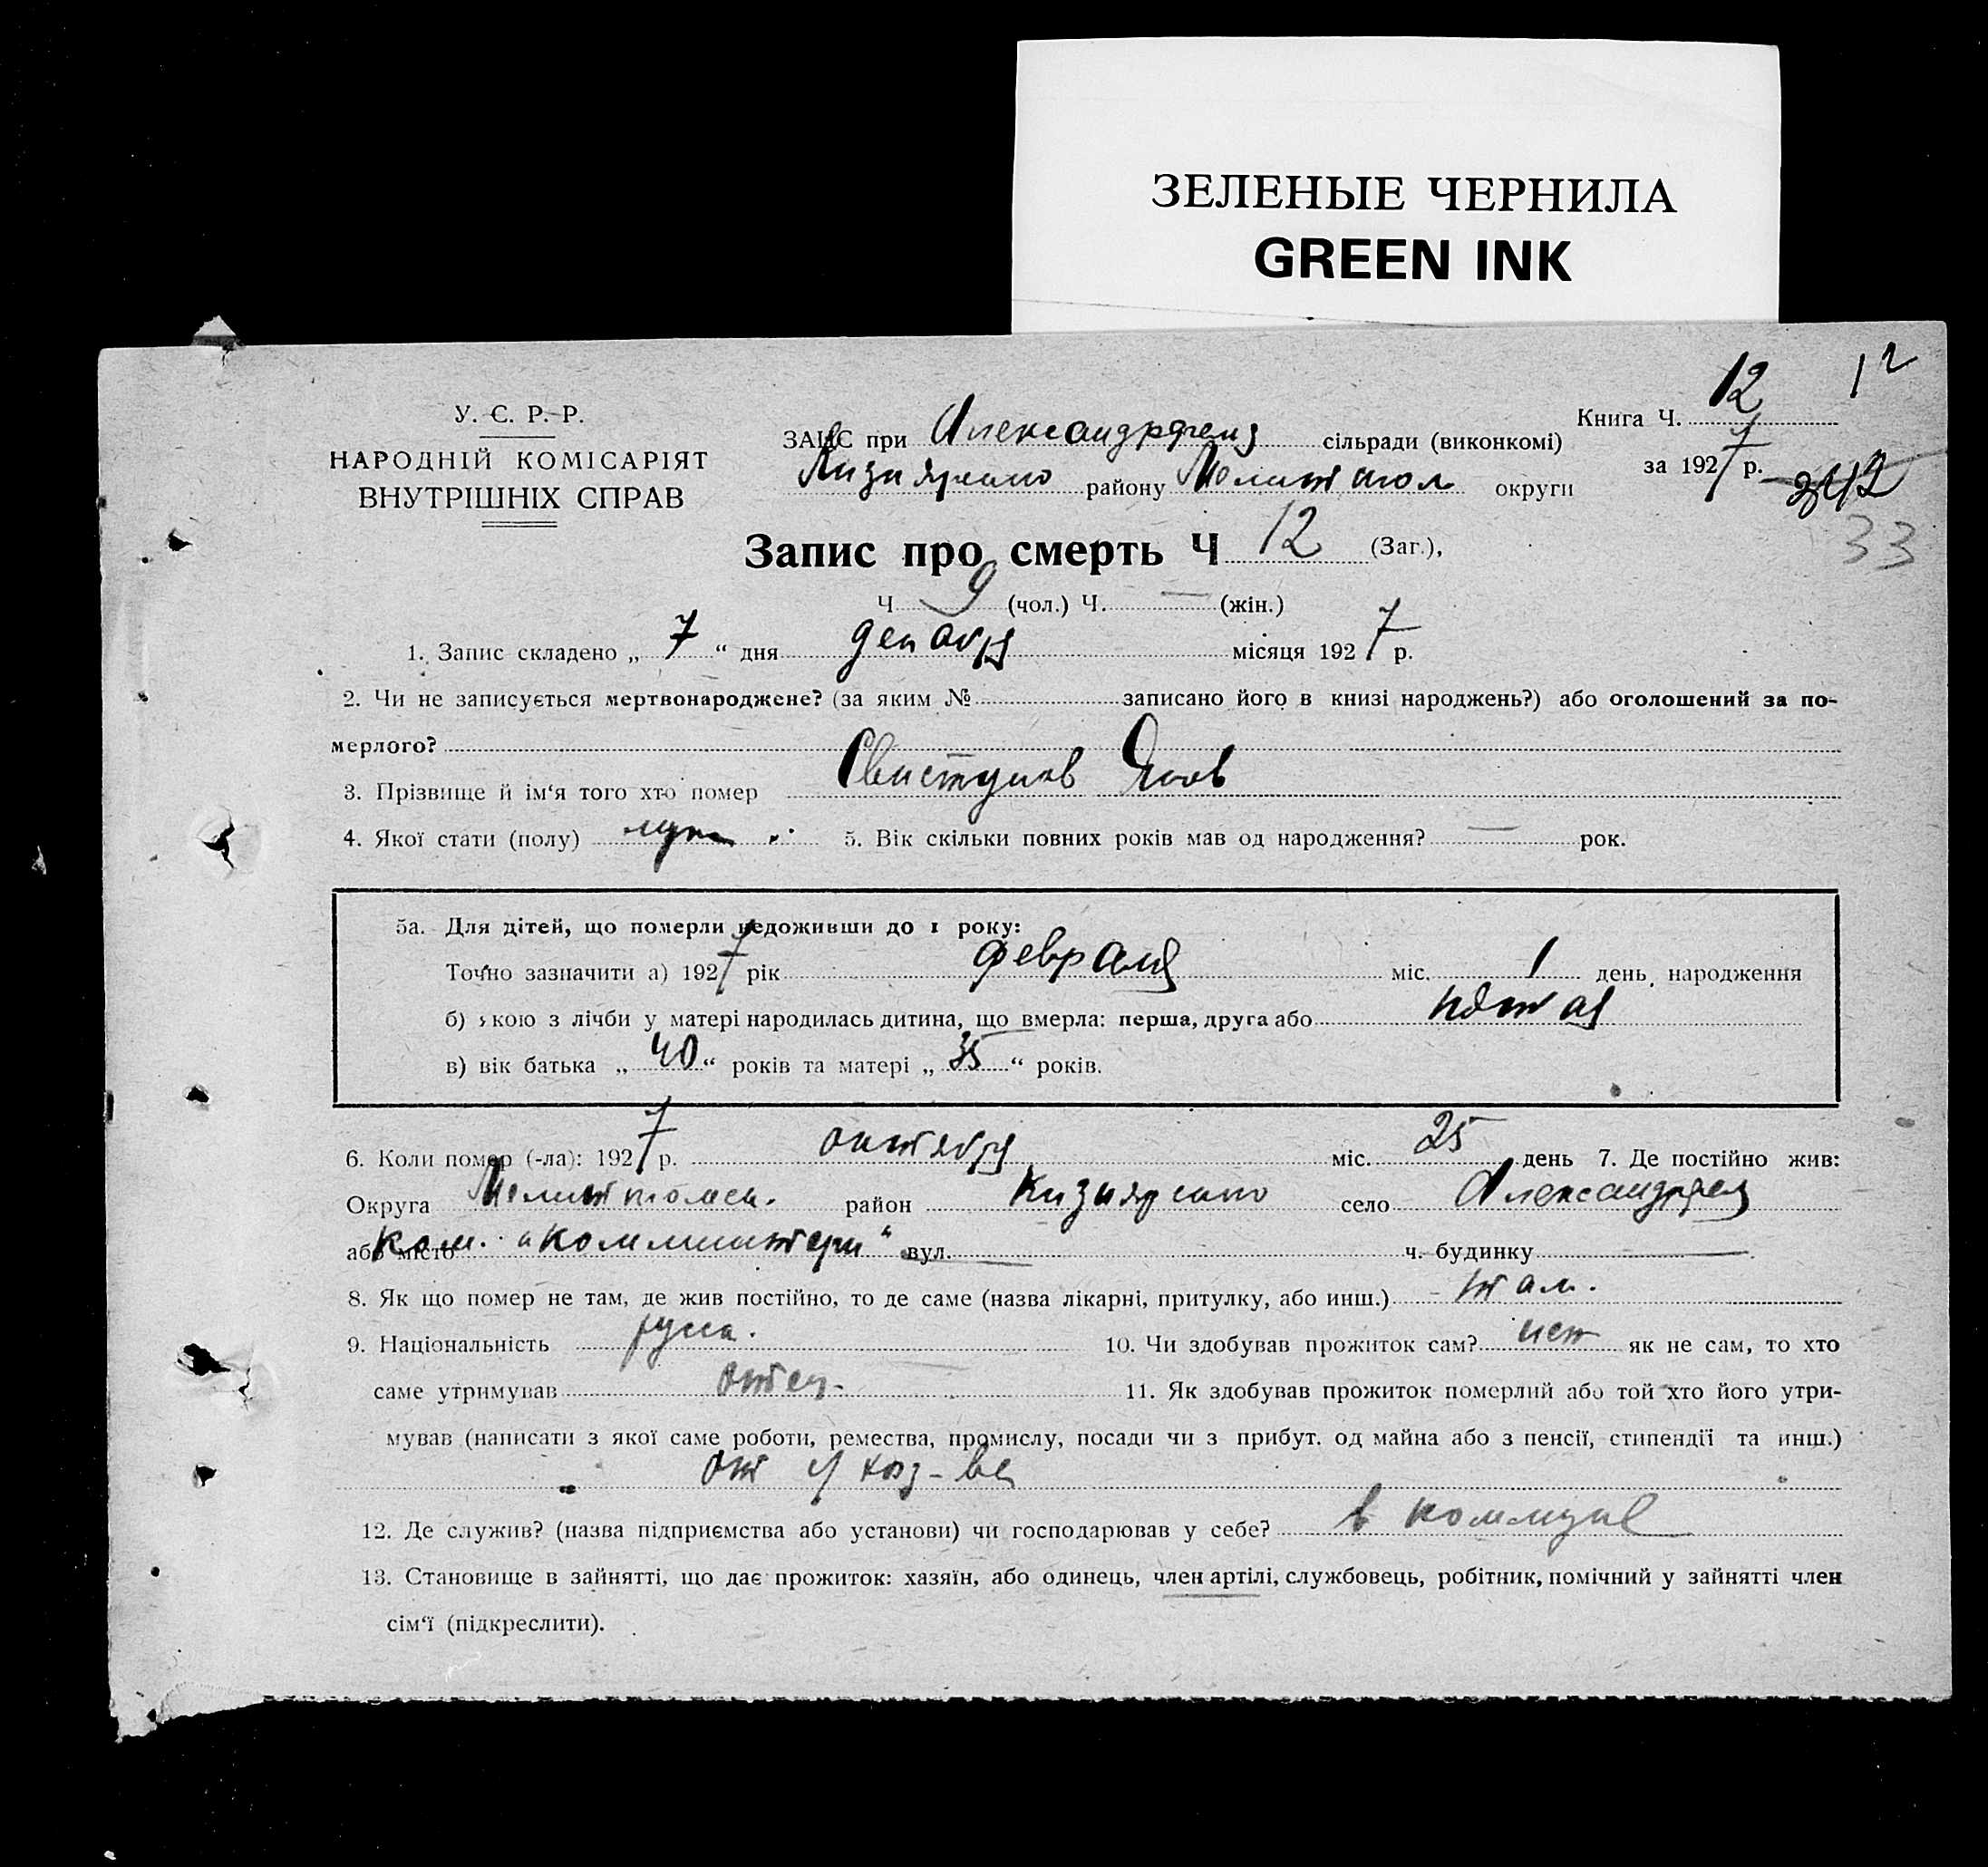 ЗЕЛЕНЫЕ ЧЕРНИЛА
GREEN INK
12
У. С. Р. Р.
НАРОДНІЙ КОМІСАРІЯТ
ВНУТРІШНІХ СПРАВ
ЗАГС при Александрфельд сільради (виконкомі)
району Мелитопол округи
Книга Ч. 12
за 1927 р.
33
Запис про смерть Ч 12 (Заг.),
Ч 9 (чол.) Ч. — (жін.)
1. Запис складено „ 7 “ дня декабря місяця 1927 р.
2. Чи не записується мертвонароджене? (за яким № записано його в книзі народжень?) або оголошений за по-
мерлого?
3. Прізвище й ім‘я того хто помер Свистунов Яков
4. Якої стати (полу) муж 5. Вік скільки повних років мав од народження? — рок.
5а. Для дітей, що померли недоживши до 1 року:
Точно зазначити а) 1927 рік февраля міс. 1 день народження
б) якою з лічби у матері народилась дитина, що вмерла: перша, друга або пятая
в) вік батька „ 40 “ років та матері „ 35 “ років.
6. Коли помер (-ла): 1927 р. октября міс. 25 день 7. Де постійно жив:
Округа Мелитопольск. район село Александрфельд
або місто Ком. „Коминтерн“ вул. — ч. будинку —
8. Як що помер не там, де жив постійно, то де саме (назва лікарні, притулку, або инш.) там.
9. Національність русск. 10. Чи здобував прожиток сам? нет як не сам, то хто
саме утримував отец. 11. Як здобував прожиток померлий або той хто його утри-
мував (написати з якої саме роботи, ремества, промислу, посади чи з прибут. од майна або з пенсії, стипендії та инш.)
от с/хоз-ва
12. Де служив? (назва підприємства або установи) чи господарював у себе? в коммуне
13. Становище в зайнятті, що дає прожиток: хазяїн, або одинець, член артілі, службовець, робітник, помічний у зайнятті член
сім‘ї (підкреслити).